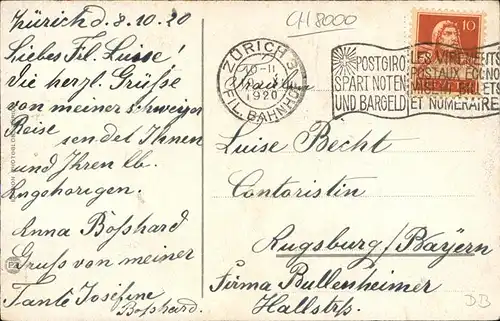 Zürich d. 8.10.20
Liebes Frl. Luise!
Die herzl. Grüße
von meiner Schweizer
Reise sendet Ihnen
und Ihren lb.
Angehörigen.
Anna Boßhard
Gruss von meiner
Tante Josefine
Boßhard.
CH 8000
10
ZÜRICH 3
1920
FIL. BAHNHOF
POSTGIRO
SPART NOTEN
UND BARGELD
LES VIREMENTS
POSTAUX ECONO
MISENT BILLETS
ET NUMERAIRE
Fräulein
Luise Becht
Contoristin
Augsburg/Bayern
Firma Bullenheimer
Hallstrß.
DB